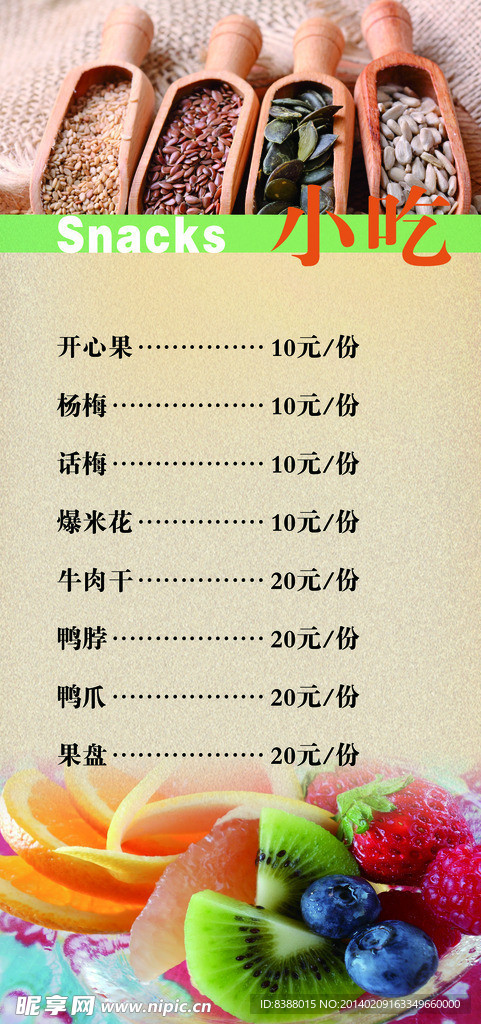 Snacks 小吃
开心果··············· 10元/份
杨梅·················· 10元/份
话梅·················· 10元/份
爆米花··············· 10元/份
牛肉干··············· 20元/份
鸭脖·················· 20元/份
鸭爪·················· 20元/份
果盘·················· 20元/份
昵享网 www.nipic.cn
ID:8388015 NO:20140209163349660000